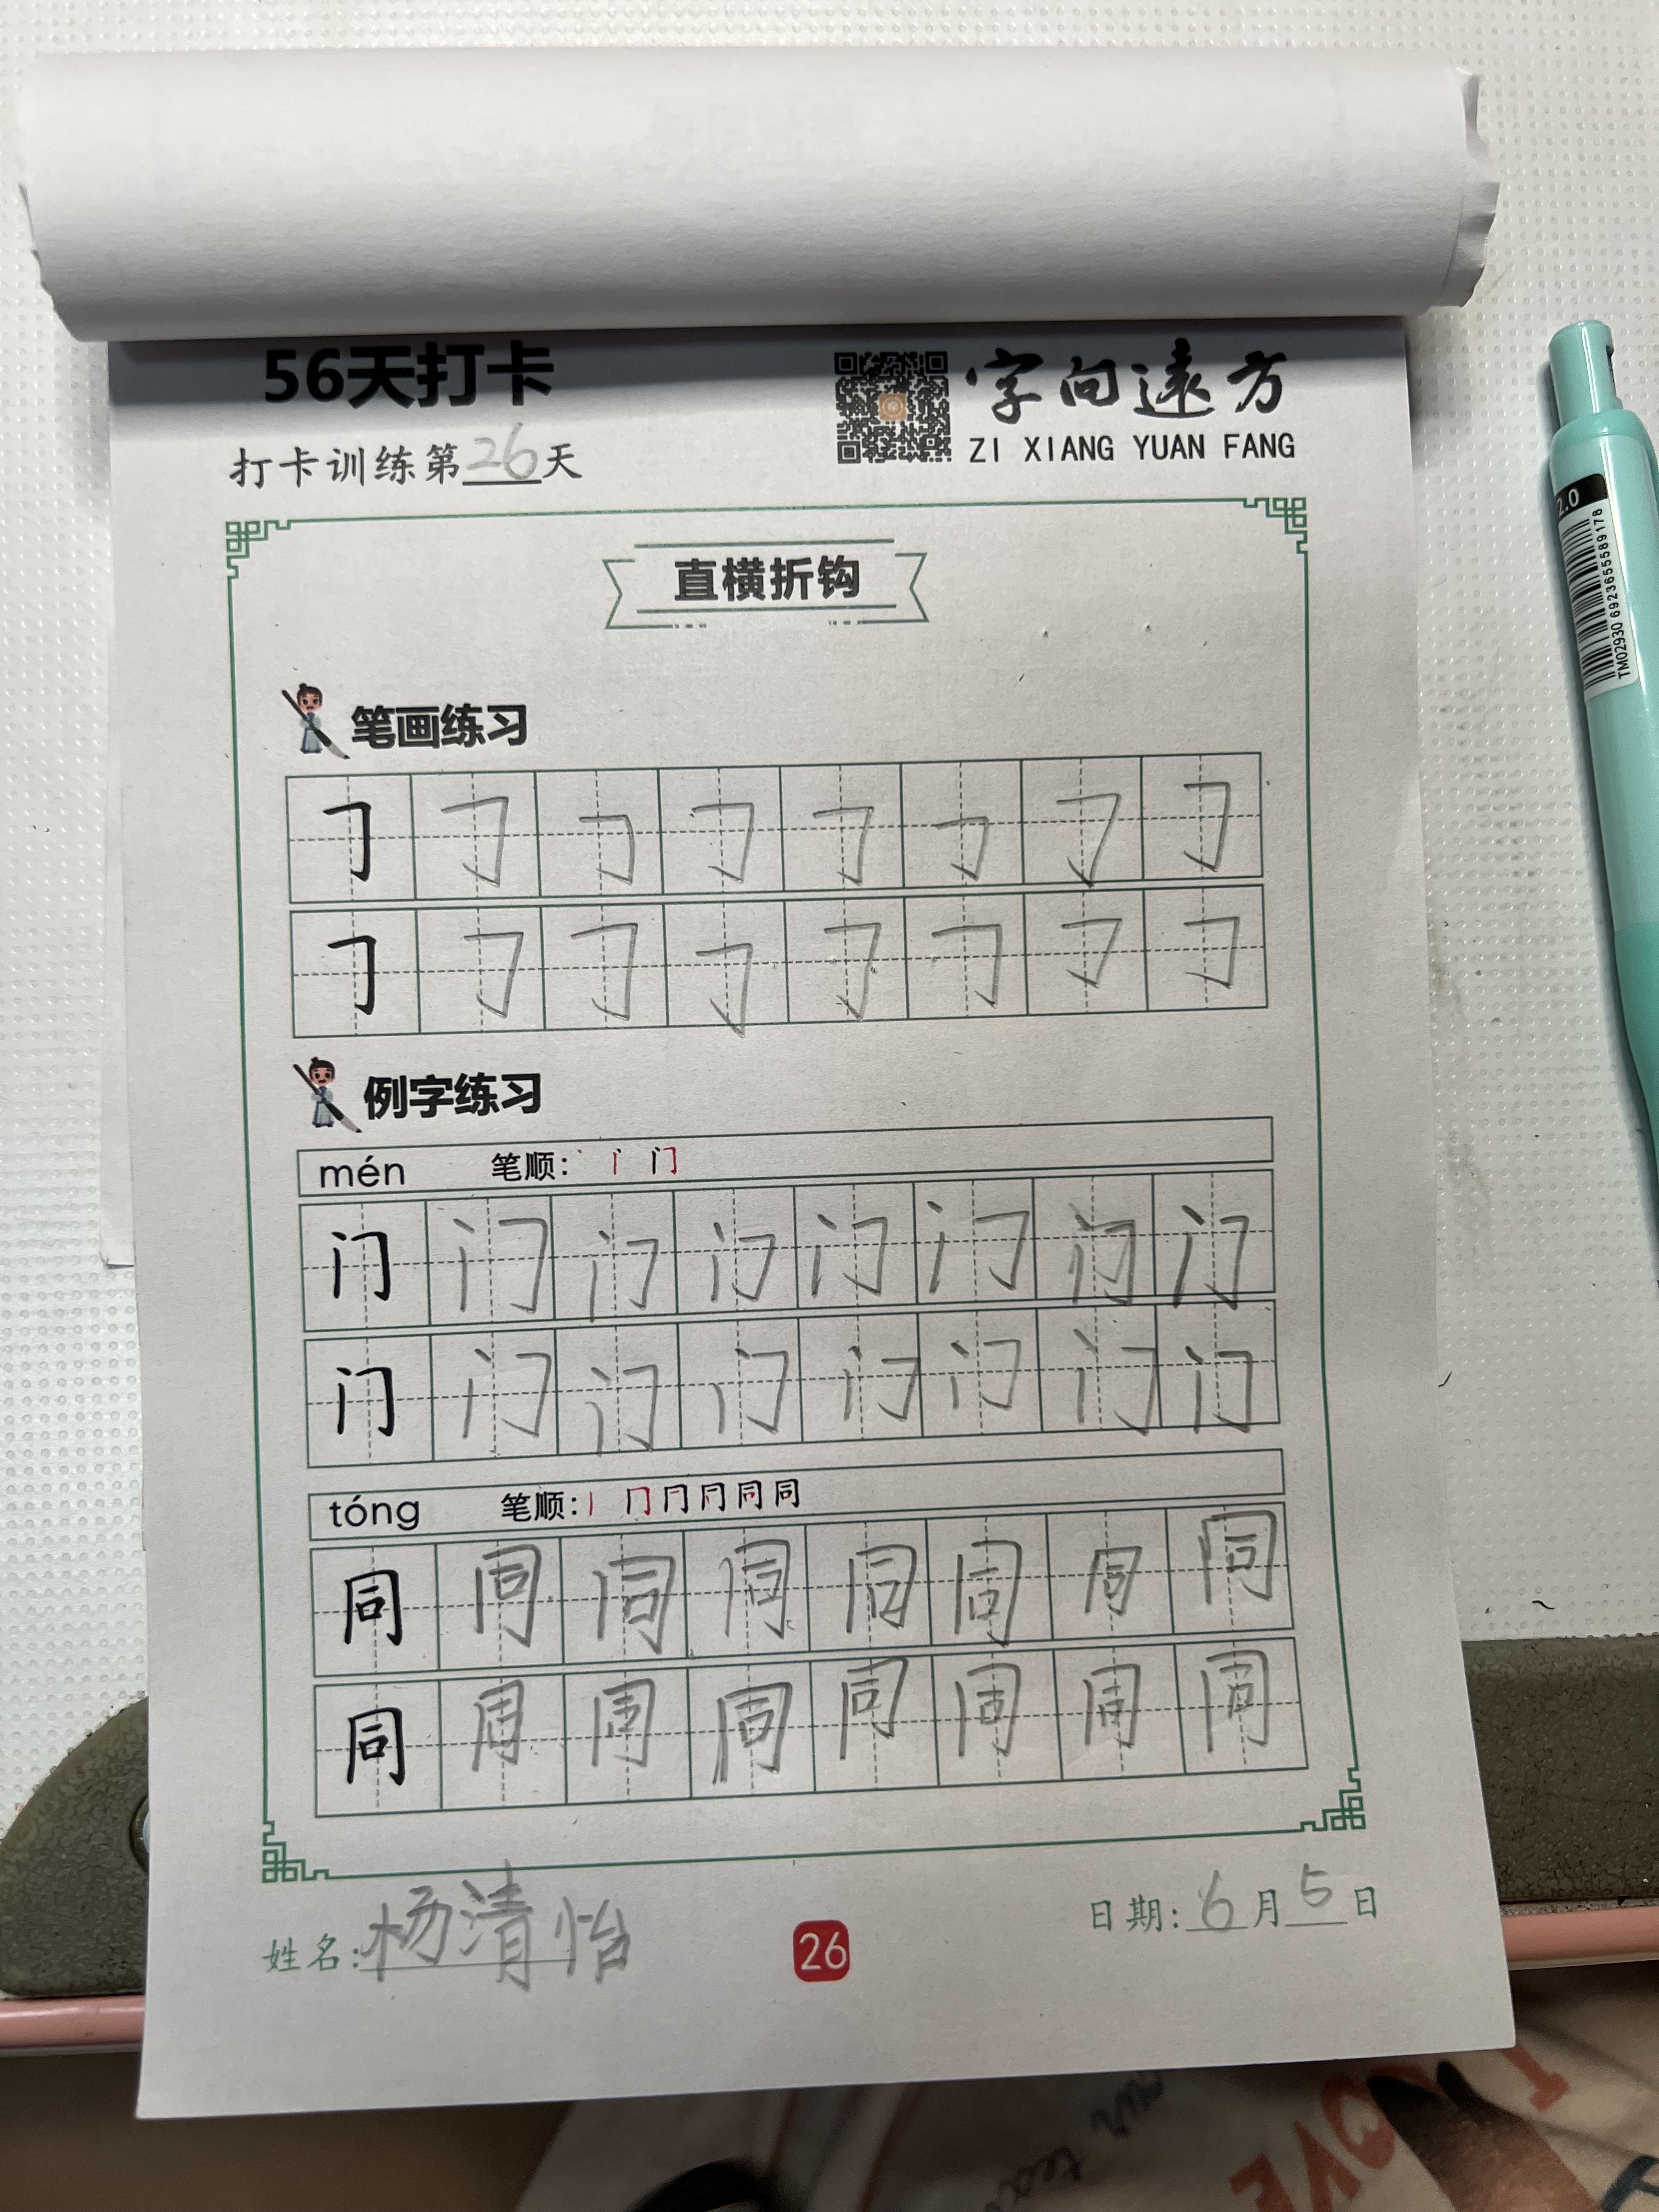 56天打卡
字向遠方
ZI XIANG YUAN FANG
打卡训练第26天
直横折钩
笔画练习
𠃌 𠃌 𠃌 𠃌 𠃌 𠃌 𠃌 𠃌
𠃌 𠃌 𠃌 𠃌 𠃌 𠃌 𠃌 𠃌
例字练习
mén 笔顺: 丶 丨 门
门 门 门 门 门 门 门 门
门 门 门 门 门 门 门 门
tóng 笔顺: 丨 冂 冂 冋 同 同
同 同 同 同 同 同 同 同
同 同 同 同 同 同 同 同
姓名: 杨清怡
26
日期: 6月5日
2.0
TM02930 6923655589178